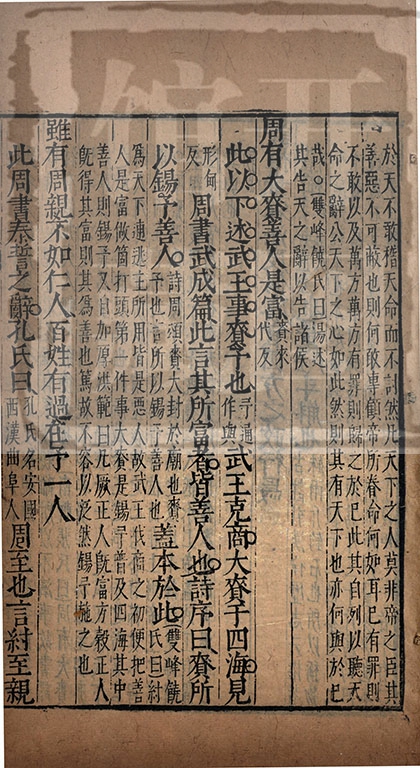 於天不敢稽天命而不討然凡天下之人莫非帝之臣其
善惡不可蔽也則何敢專顧帝所眷命何如耳已有罪則
不敢以及萬方萬方有罪則歸之於已此其自列以聽天
命之辭公天下之心如此然則其有天下也亦何與於已
哉。雙峰饒氏曰湯述
其告天之辭以告諸侯
周有大賚善人是富賚來代反
此以下述武王事賚予也予通作與武王克商大賚于四海見
形甸反周書武成篇此言其所富者皆善人也詩序曰賚所
以錫予善人。詩周頌賚大封於廟也賚予也言所以錫予善人也蓋本於此雙峰饒氏曰紂
為天下逋逃主所用皆是惡人故武王伐商之初便把善
人是富做箇打頭第一件事大賚是錫予普及四海其中
善人則錫予又自加厚洪範曰凡厥正人既富方穀正人
既得其富則其為善也篤故不容以泛然錫予施之也
雖有周親不如仁人百姓有過在予一人
此周書泰誓之辭。孔氏曰孔氏名安國西漢曲阜人周至也言紂至親